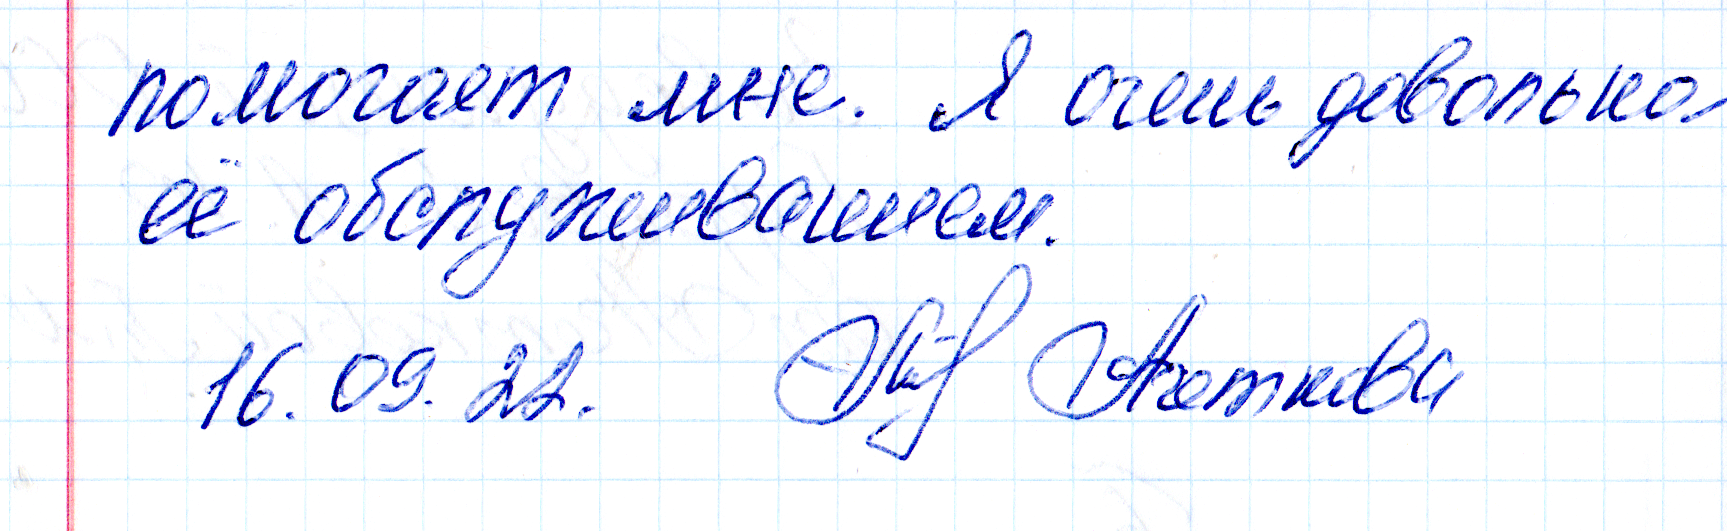 помогает мне. Я очень довольна
её обслуживанием.
16.09.22.